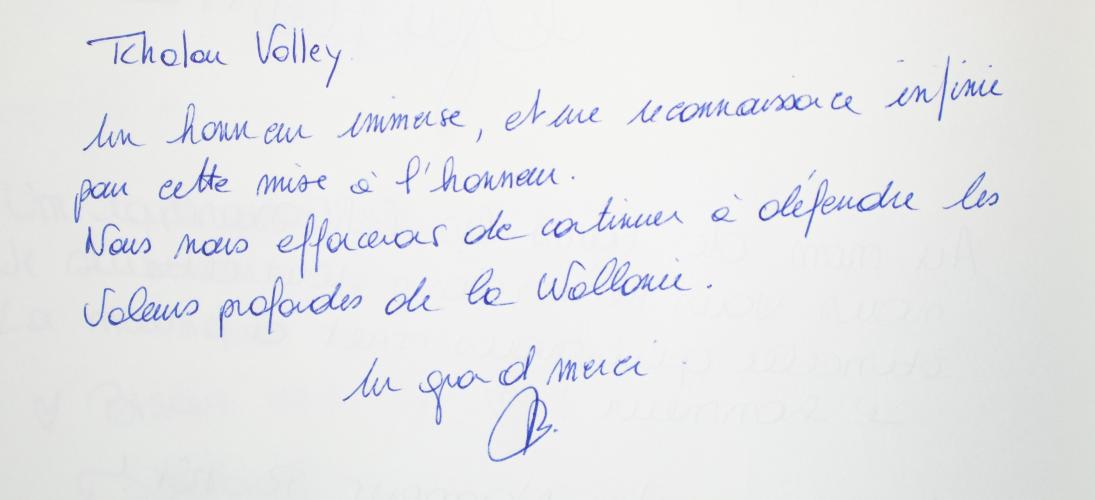 Tchalou Volley
Un honneur immense, et une reconnaissance infinie
pour cette mise à l'honneur.
Nous nous efforcerons de continuer à défendre les
Valeurs profondes de la Wallonie.
Un grand merci